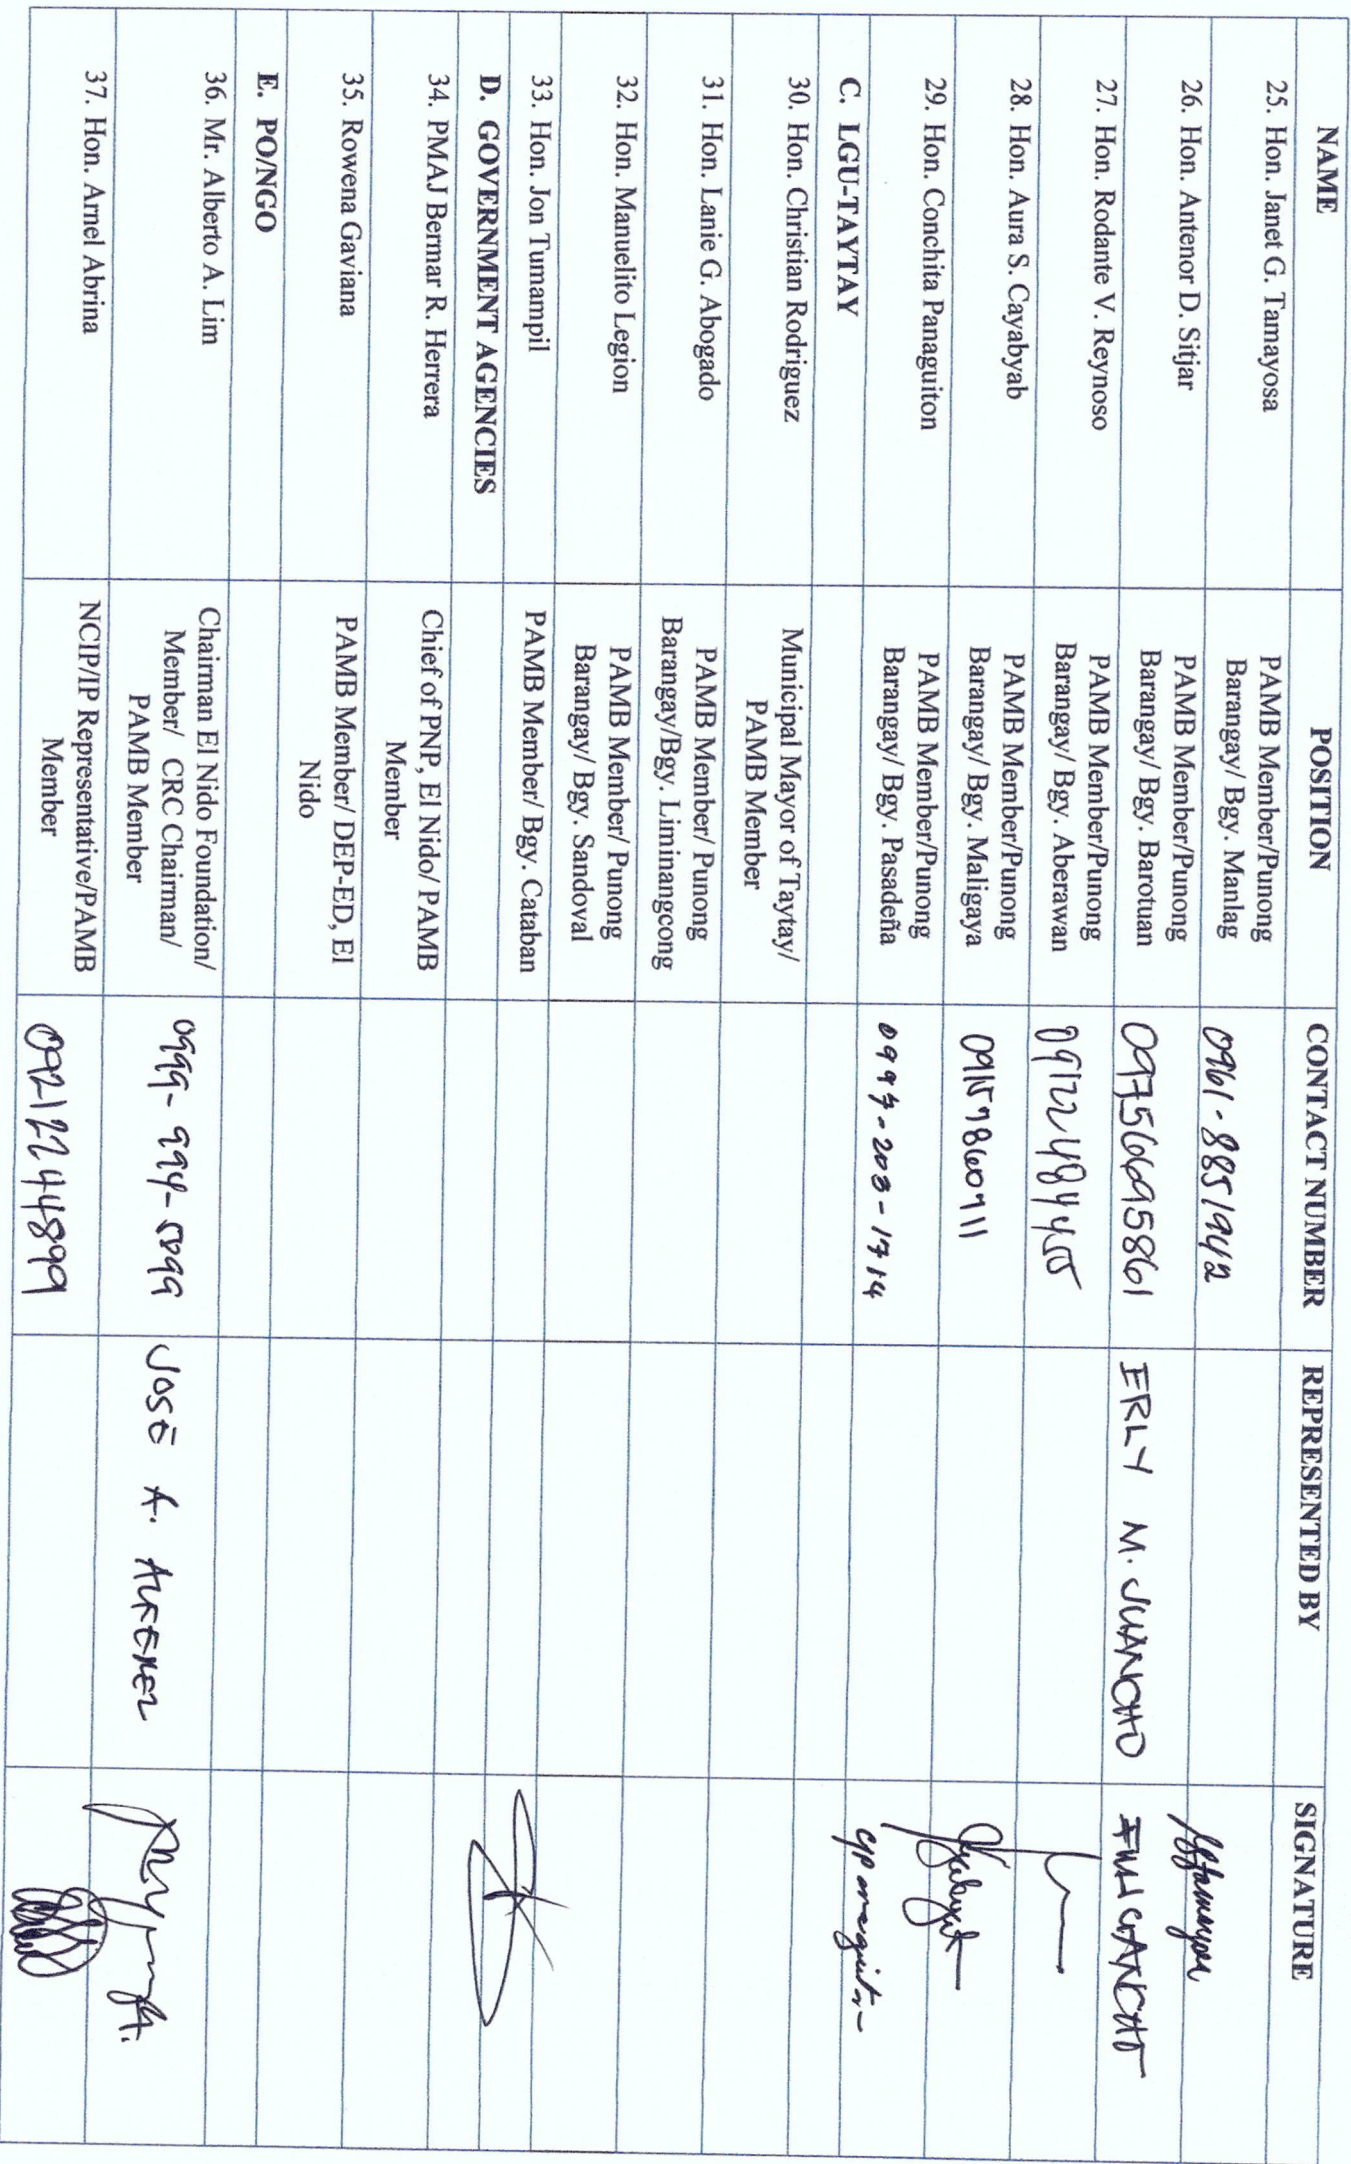 NAME POSITION CONTACT NUMBER REPRESENTED BY SIGNATURE
25. Hon. Janet G. Tamayosa PAMB Member/Punong 0961-8851942
Barangay/ Bgy. Manlag
26. Hon. Antenor D. Sitjar PAMB Member/Punong 09756695861 ERLY M. JUANCHO
Barangay/ Bgy. Barotuan
27. Hon. Rodante V. Reynoso PAMB Member/Punong
Barangay/ Bgy. Aberawan
28. Hon. Aura S. Cayabyab PAMB Member/Punong 09157860711
Barangay/ Bgy. Maligaya
29. Hon. Conchita Panaguiton PAMB Member/Punong 0997-203-1714
Barangay/ Bgy. Pasadeña
C. LGU-TAYTAY
30. Hon. Christian Rodriguez Municipal Mayor of Taytay/
PAMB Member
31. Hon. Lanie G. Abogado PAMB Member/ Punong
Barangay/Bgy. Liminangcong
32. Hon. Manuelito Legion PAMB Member/ Punong
Barangay/ Bgy. Sandoval
33. Hon. Jon Tumampil PAMB Member/ Bgy. Cataban
D. GOVERNMENT AGENCIES
34. PMAJ Bernar R. Herrera Chief of PNP, El Nido/ PAMB
Member
35. Rowena Gaviana PAMB Member/ DEP-ED, El
Nido
E. PO/NGO
36. Mr. Alberto A. Lim Chairman El Nido Foundation/ 0999-994-5899 JOSE A. ALFEREZ
Member/ CRC Chairman/
PAMB Member
37. Hon. Arnel Abrina NCIP/IP Representative/PAMB 09212244899
Member